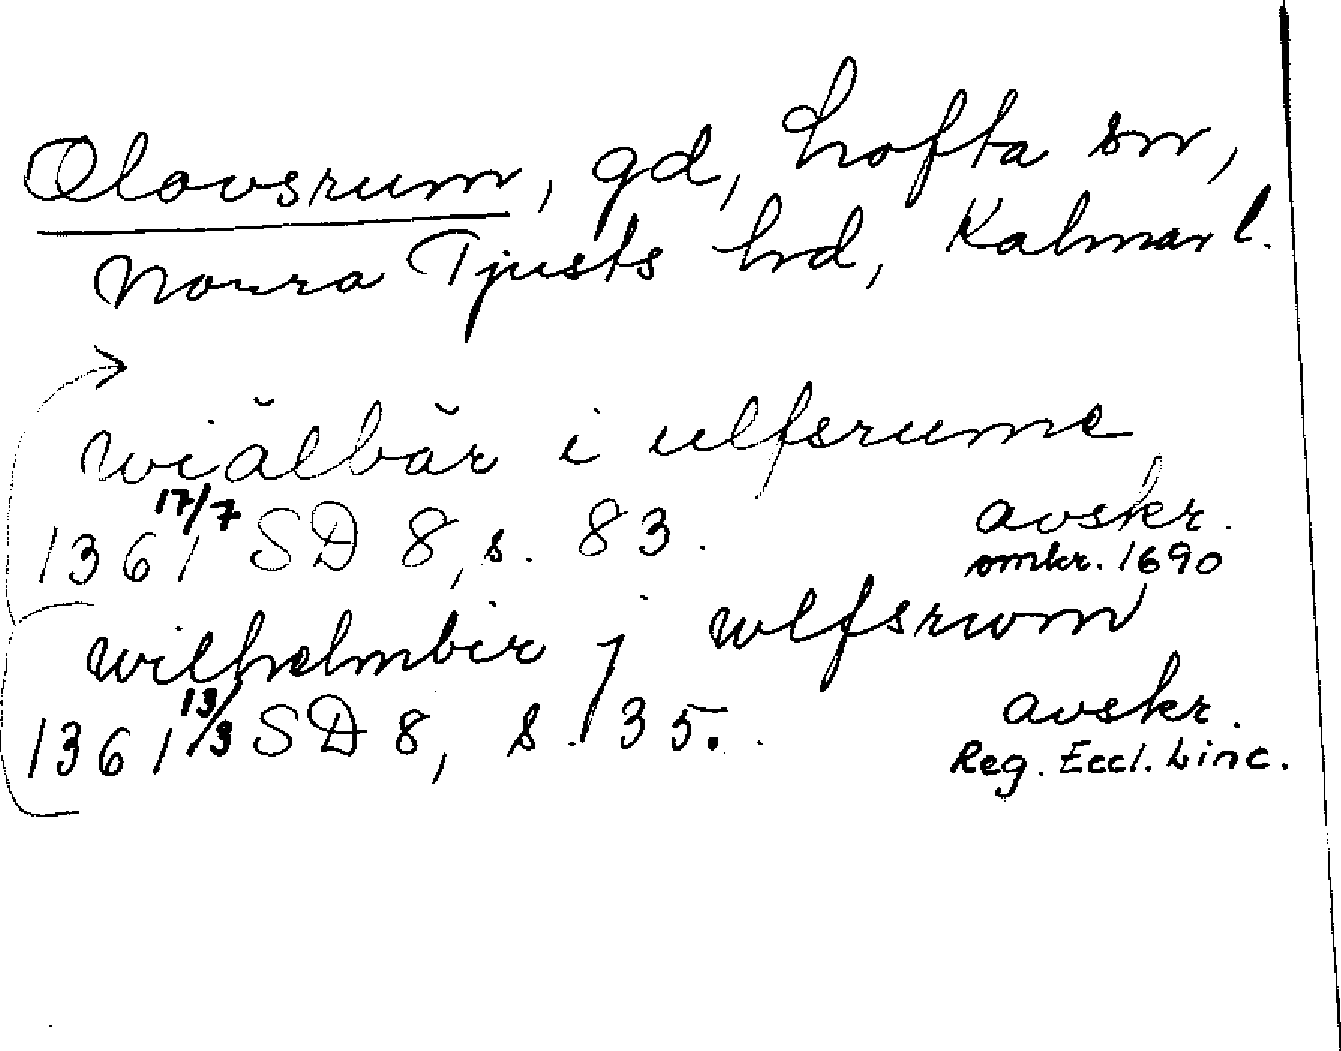 Olovsrum, gd, Lofta sn,
Norra Tjusts hd, Kalmar l.
wiǎlbǎr i ulfsrume
1361 17/7 SD 8, s. 83. avskr.
omkr. 1690
wilhelmbir j wlfsrwm
1361 13/3 SD 8, s. 135. avskr.
Reg. Eccl. Linc.